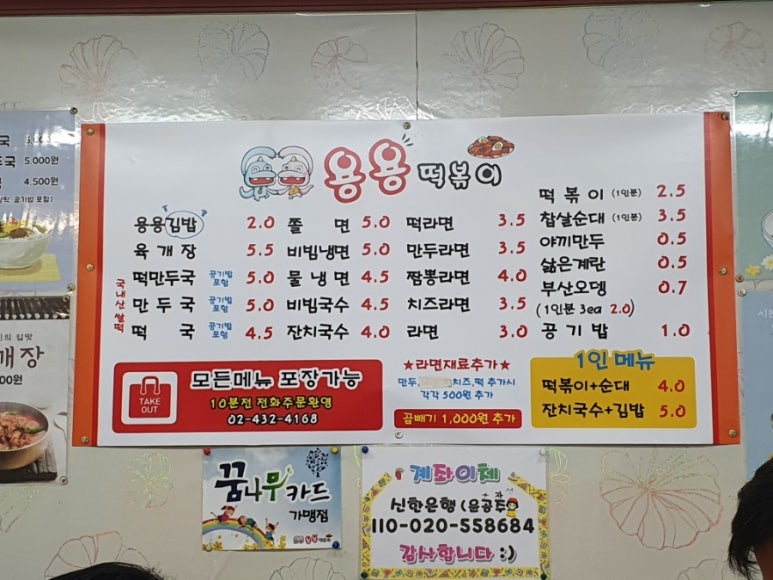 용용 떡볶이
용용김밥 2.0
육개장 5.5
떡만두국 공기밥 포함 5.0
만두국 공기밥 포함 5.0
떡국 공기밥 포함 4.5
국내산쌀떡
쫄면 5.0
비빔냉면 5.0
물냉면 4.5
비빔국수 4.5
잔치국수 4.0
떡라면 3.5
만두라면 3.5
짬뽕라면 4.0
치즈라면 3.5
라면 3.0
떡볶이 (1인분) 2.5
찹살순대 (1인분) 3.5
야끼만두 0.5
삶은계란 0.5
부산오뎅 0.7
(1인분 3ea 2.0)
공기밥 1.0
TAKE OUT
모든메뉴 포장가능
10분전 전화주문환영
02-432-4168
★라면재료추가★
만두, 치즈, 떡 추가시
각각 500원 추가
곱빼기 1,000원 추가
1인 메뉴
떡볶이+순대 4.0
잔치국수+김밥 5.0
국
드국 5.000원
4.500원
개장
꿈나무카드
가맹점
계좌이체
신한은행 (윤공주
110-020-558684
감사합니다 :)